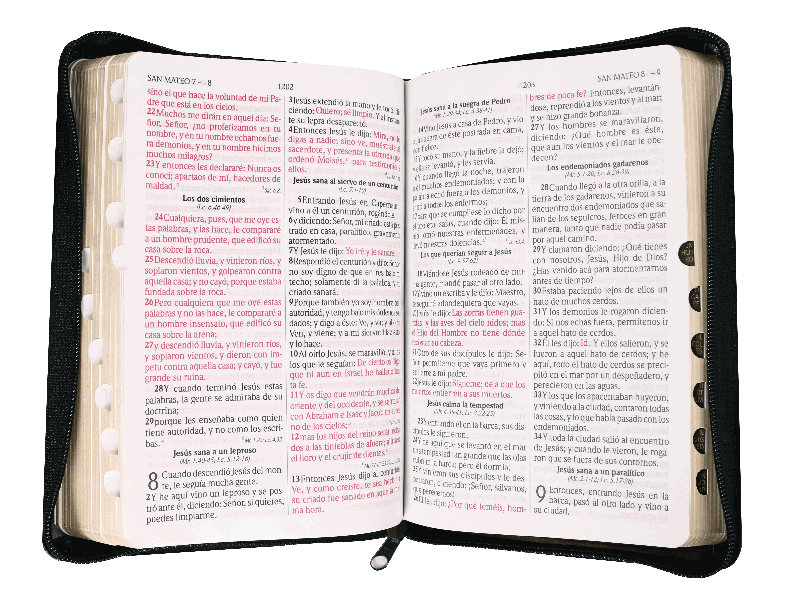 SAN MATEO 7 — 8
1202
sino el que hace la voluntad de mi Pa-
dre que está en los cielos.
22Muchos me dirán en aquel día: Se-
ñor, Señor, ¿no profetizamos en tu
nombre, y en tu nombre echamos fue-
ra demonios, y en tu nombre hicimos
muchos milagros?
23Y entonces les declararé: Nunca os
conocí; apartaos de mí, hacedores de
maldad.
Los dos cimientos
(Lc. 6.46-49)
24Cualquiera, pues, que me oye es-
tas palabras, y las hace, le compararé
a un hombre prudente, que edificó su
casa sobre la roca.
25Descendió lluvia, y vinieron ríos, y
soplaron vientos, y golpearon contra
aquella casa; y no cayó, porque estaba
fundada sobre la roca.
26Pero cualquiera que me oye estas
palabras y no las hace, le compararé a
un hombre insensato, que edificó su
casa sobre la arena;
27y descendió lluvia, y vinieron ríos,
y soplaron vientos, y dieron con ím-
petu contra aquella casa; y cayó, y fue
grande su ruina.
28Y cuando terminó Jesús estas
palabras, la gente se admiraba de su
doctrina;
29porque les enseñaba como quien
tiene autoridad, y no como los escri-
bas.
Jesús sana a un leproso
(Mr. 1.40-45; Lc. 5.12-16)
8 Cuando descendió Jesús del mon
te, le seguía mucha gente.
2Y he aquí vino un leproso y se pos
tró ante él, diciendo: Señor, si quieres,
puedes limpiarme.
3Jesús extendió la mano y le
ciendo: Quiero; sé limpio. Y al instan
te su lepra desapareció.
4Entonces Jesús le dijo: Mira, no
digas a nadie; sino ve, muéstrate al
sacerdote, y presenta la ofrenda que
ordenó Moisés, para testimonio
ellos.
Jesús sana al siervo de un centurión
(Lc. 7.1-10)
5Entrando Jesús en Capernaum
vino a él un centurión, rogándole
6y diciendo: Señor, mi criado está pos
trado en casa, paralítico, gravemente
atormentado.
7Y Jesús le dijo: Yo iré y le sanaré.
8Respondió el centurión y dijo: Señor
no soy digno de que entres bajo mi
techo; solamente di la palabra, y mi
criado sanará.
9Porque también yo soy hombre
autoridad, y tengo bajo mis órdenes
dados; y digo a éste: Ve, y va; y
Ven, y viene; y a mi siervo: Haz
y lo hace.
10Al oírlo Jesús, se maravilló, y
los que le seguían: De cierto os digo
que ni aun en Israel he hallado
ta fe.
11Y os digo que vendrán muchos
oriente y del occidente, y se sentarán
con Abraham e Isaac y Jacob en el
no de los cielos;
12mas los hijos del reino serán echa
dos a las tinieblas de afuera; allí
el lloro y el crujir de dientes.
13Entonces Jesús dijo al centurión
Ve, y como creíste, te sea hecho
su criado fue sanado en aquella
ma hora.
1203
SAN MATEO 8 — 9
Jesús sana a la suegra de Pedro
14Vino Jesús a casa de Pedro, y vio
a de éste postrada en cama,
con fiebre.
15Y tocó su mano, y la fiebre la dejó;
y ella se levantó, y les servía.
16Y cuando llegó la noche, trajeron
a él muchos endemoniados; y con la
palabra echó fuera a los demonios, y
a todos los enfermos;
17para que se cumpliese lo dicho por
el profeta Isaías, cuando dijo: Él mis-
mo tomó nuestras enfermedades, y
llevó nuestras dolencias.
Los que querían seguir a Jesús
(Lc. 9.57-62)
18Viéndose Jesús rodeado de mu-
cha gente, mandó pasar al otro lado.
19Y vino un escriba y le dijo: Maestro,
te seguiré adondequiera que vayas.
20Jesús le dijo: Las zorras tienen gua-
ridas, y las aves del cielo nidos; mas
el Hijo del Hombre no tiene dónde
su cabeza.
21Otro de sus discípulos le dijo: Se-
ñor, permíteme que vaya primero y
entierre a mi padre.
22Jesús le dijo: Sígueme; deja que los
muertos entierren a sus muertos.
Jesús calma la tempestad
23Y entrando él en la barca, sus dis-
cípulos le siguieron.
24Y he aquí que se levantó en el mar
una tempestad tan grande que las olas
cubrían la barca; pero él dormía.
25Y vinieron sus discípulos y le des-
pertaron, diciendo: ¡Señor, sálvanos,
que perecemos!
26Él les dijo: ¿Por qué teméis, hom-
bres de poca fe? Entonces, levantán-
dose, reprendió a los vientos y al mar;
y se hizo grande bonanza.
27Y los hombres se maravillaron,
diciendo: ¿Qué hombre es éste,
que aun los vientos y el mar le obe-
decen?
Los endemoniados gadarenos
(Mr. 5.1-20; Lc. 8.26-39)
28Cuando llegó a la otra orilla, a la
tierra de los gadarenos, vinieron a su
encuentro dos endemoniados que sa-
lían de los sepulcros, feroces en gran
manera, tanto que nadie podía pasar
por aquel camino.
29Y clamaron diciendo: ¿Qué tienes
con nosotros, Jesús, Hijo de Dios?
¿Has venido acá para atormentarnos
antes de tiempo?
30Estaba paciendo lejos de ellos un
hato de muchos cerdos.
31Y los demonios le rogaron dicien-
do: Si nos echas fuera, permítenos ir
a aquel hato de cerdos.
32Él les dijo: Id. Y ellos salieron, y se
fueron a aquel hato de cerdos; y he
aquí, todo el hato de cerdos se preci-
pitó en el mar por un despeñadero, y
perecieron en las aguas.
33Y los que los apacentaban huyeron,
y viniendo a la ciudad, contaron todas
las cosas, y lo que había pasado con los
endemoniados.
34Y toda la ciudad salió al encuentro
de Jesús; y cuando le vieron, le roga-
ron que se fuera de sus contornos.
Jesús sana a un paralítico
(Mr. 2.1-12; Lc. 5.17-26)
9 Entonces, entrando Jesús en la
barca, pasó al otro lado y vino a
su ciudad.